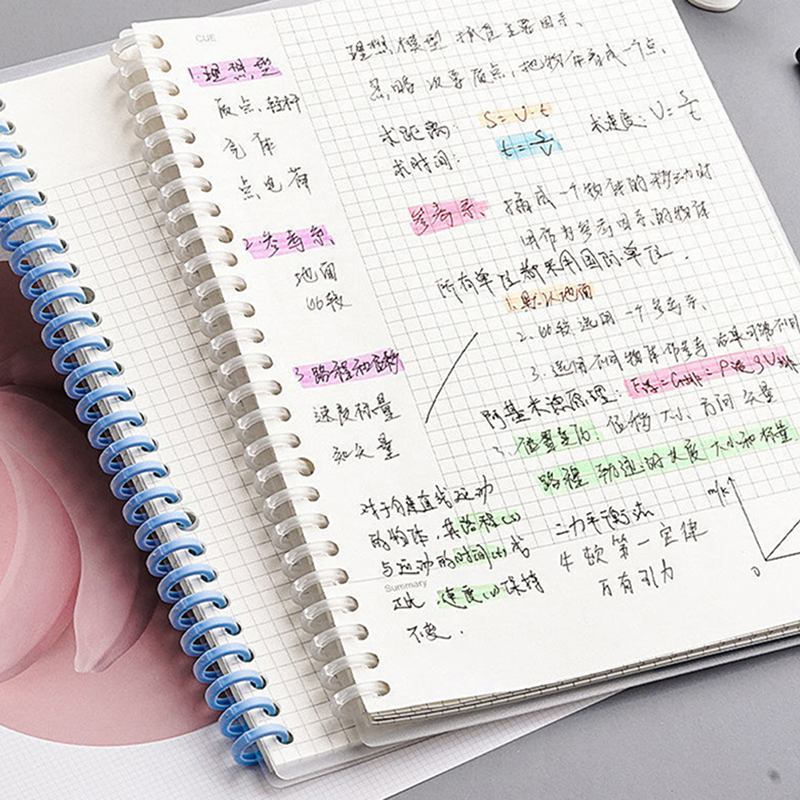 CUE
1.理想型
质点、轻杆
点电荷
2.参考系、
地面
3.路程和位移
速度标量
和矢量
理想模型 抓住主要因素、
忽略次要质点,把物体看成一个点,
求距离: S=V·t
求速度: V=S/t
求时间: t=S/V
参考系、 一个物体的移动时
用作为参考因素的物体
所有单位都采用国际单位.
1.默认地面
2. 选用一个参考系、
3. 选用不同物体作参考
阿基米德原理: F浮=G排=ρ液gV排
位移大小、方向矢量
路程 轨迹的长度 大小和标量
对于匀速直线运动
的物体,其路程(s)
与运动的时间(t)成
正比 速度(v)保持
不变.
二力平衡法
牛顿第一定律
万有引力
0
Summary